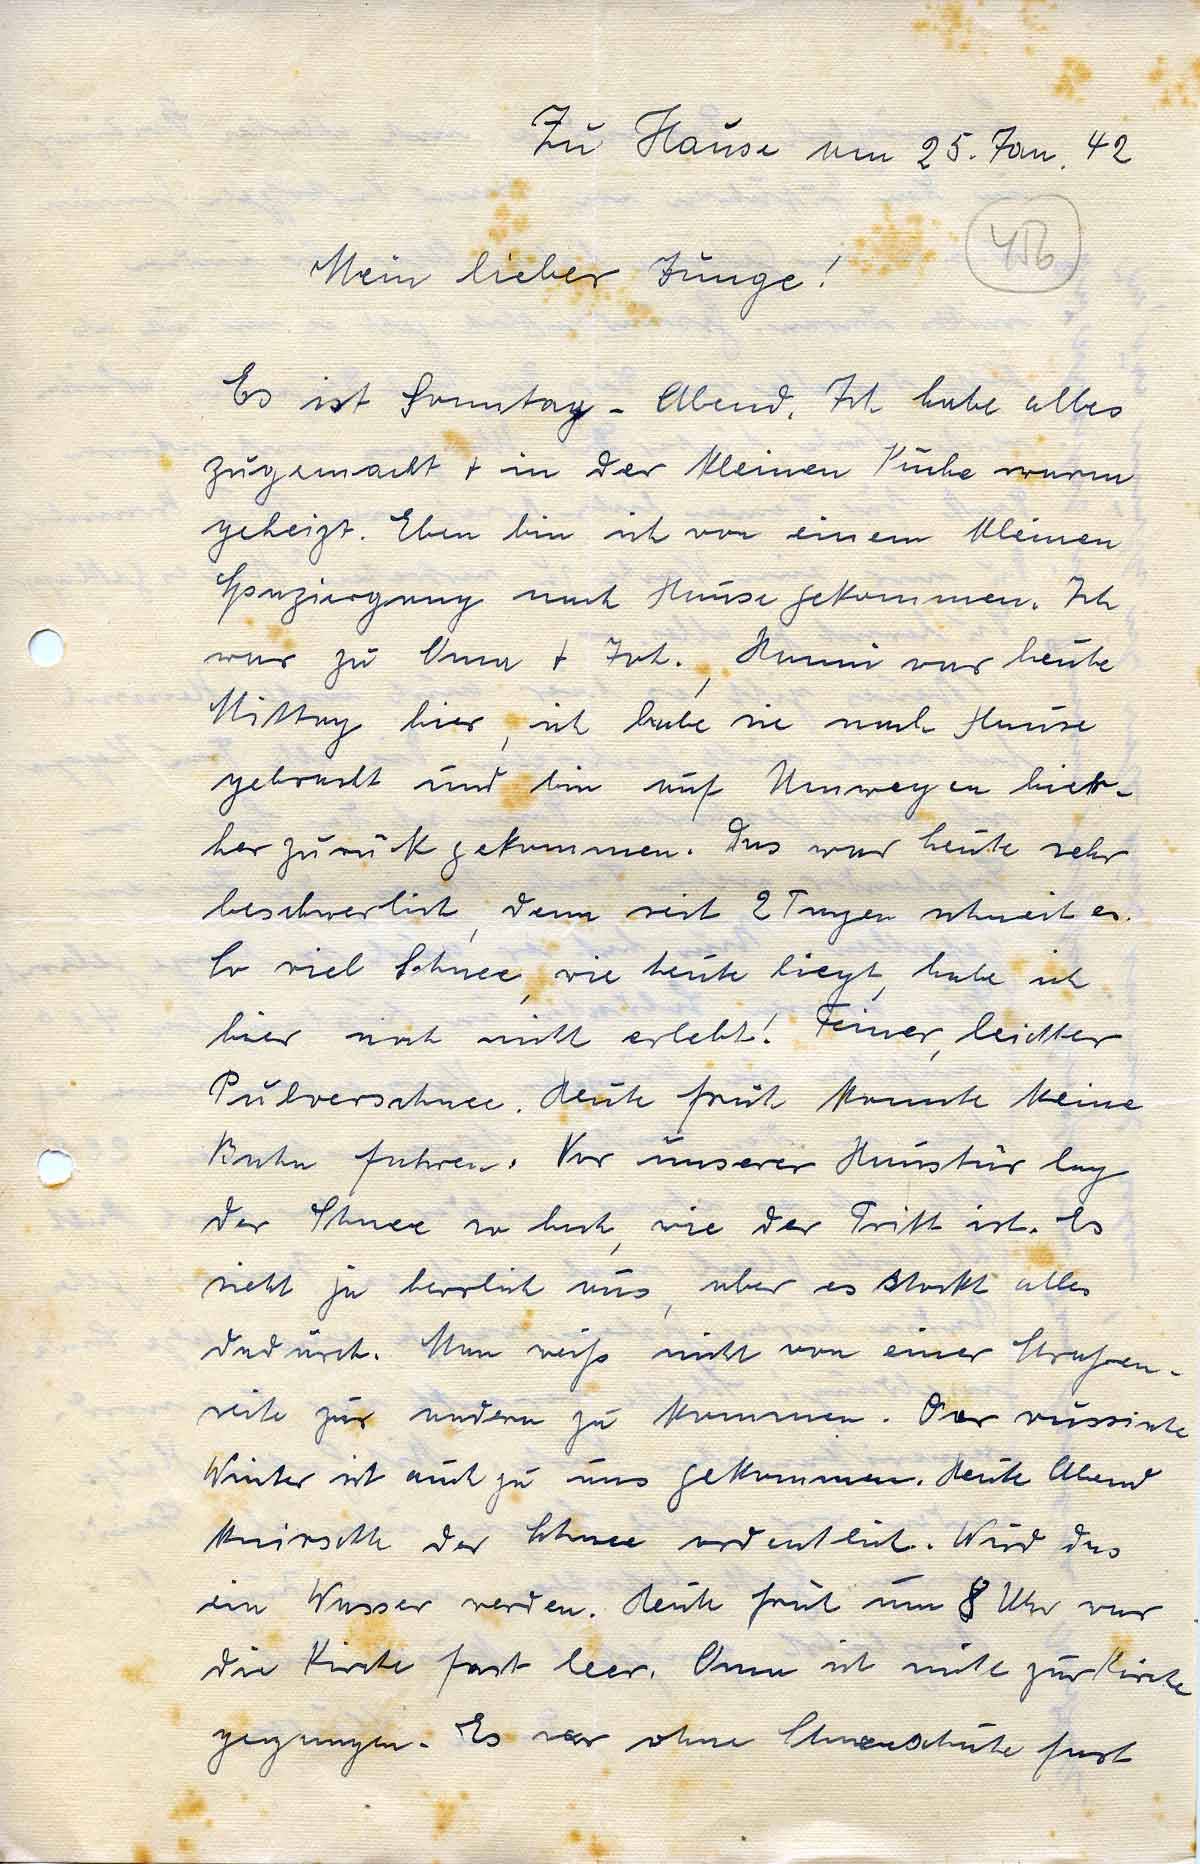 Zu Hause am 25. Jan. 42
Mein lieber Junge!
Es ist Sonntag - Abend. Ich habe alles
zugemacht + in der kleinen Küche warm
geheizt. Eben bin ich von einem kleinen
Spaziergang nach Hause gekommen. Ich
war zu Oma + Joh., Hanni war heute
Mittag hier, ich habe sie nach Hause
gebracht und bin auf Umwegen hier-
her zurück gekommen. Das war heute sehr
beschwerlich, denn seit 2 Tagen schneit es.
So viel Schnee, wie heute liegt, habe ich
hier noch nicht erlebt! Feiner, leichter
Pulverschnee. Heute früh konnte keine
Bahn fahren. Vor unserer Haustür lag
der Schnee so hoch, wie der Tritt ist. Es
sieht ja herrlich aus, aber es stockt alles
dadurch. Man weiß nicht von einer Straßen-
seite zur andern zu kommen. Der russische
Winter ist auch zu uns gekommen. Heute Abend
knirschte der Schnee ordentlich. Wird das
ein Wasser werden. Heute früh um 8 Uhr war
die Kirche fast leer. Oma ist nicht zur Kirche
gegangen. Es war ohne Schneeschuhe fast